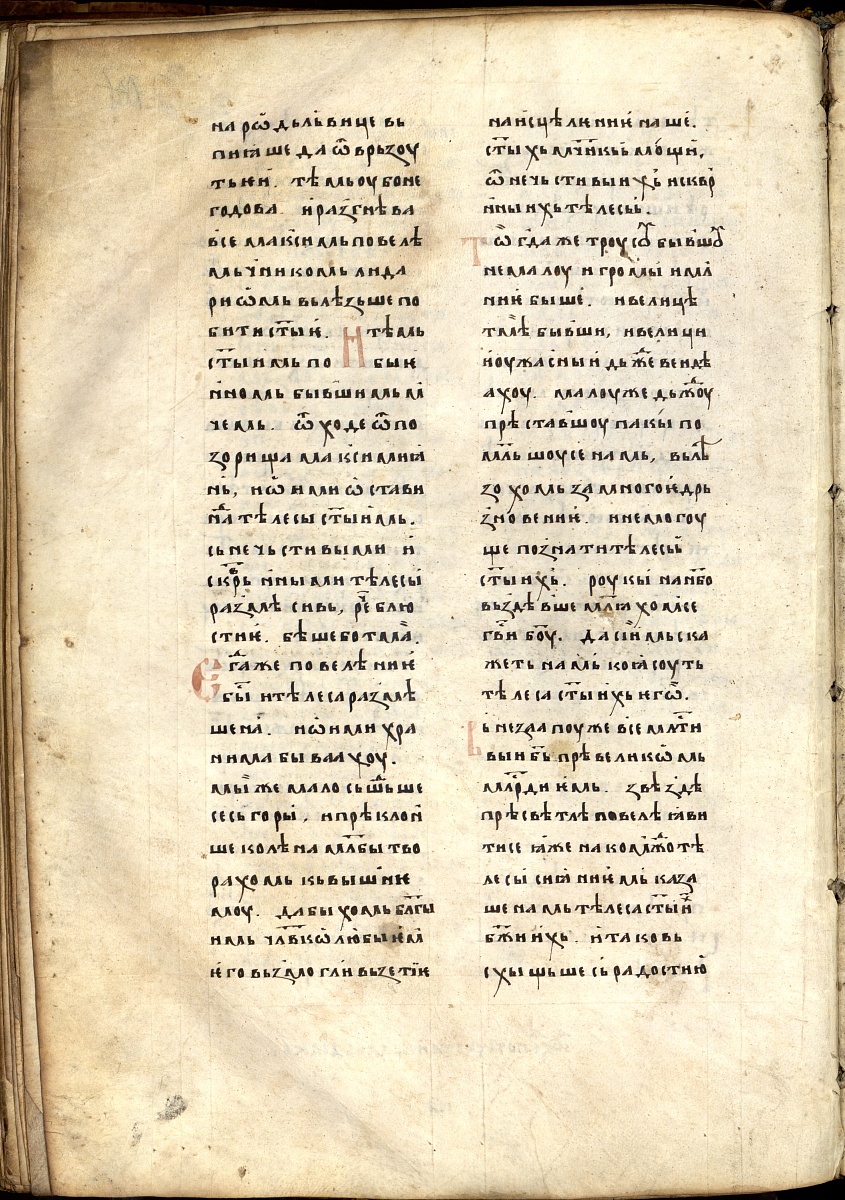 на рѡⷣ дьлѣвице вь
пиꙗше да ѿврьзоу
ть ѥи. тѣмь оубо не
годова и разгнѣва
все маѯимь повелѣ
мьчникомь лида
риѡмь вьлѣзьше по
бити ст҃ыѥ. И тѣмь
ст҃ыимь побыѥ
нномь бывшимь м
чемь. ѿходе ѿ по
зорища маѯимиꙗ
нь, иѡими ѡстави
на тѣлесы ст҃ыимь.
сь нечьстивыми и
скврьнными тѣлесы
размѣсивь, рⷱе блю
сти ѥ. бѣше бо тма.
Егⷣа же повелѣниѥ
бы и тѣлеса размѣ
шена. иѡими хра
нима бываахоу.
мы же мало сьшⷣьше
сь горы, и прѣклон
ше колѣна мл҃бы тво
рахомь кь вышнѥ
моу. да быхомь бл҃гы
имь чл҃вколюбыѥм
ѥго вьзмогли вьзетиѥ
на исцѣлѥниѥ наше.
ст҃ыхь мчн҃кьи мощи,
ѿ нечьстивыихь и сквр
нныихь тѣлесьь.
Тѡгда же троусоу бывшоу
не малоу и громы и мл
ниѥ быше. и велицѣ
тмѣ бывши, и велици
и оужасныи дьжⷣеве идѣ
ахоу. малоу же дьжⷣоу
прѣставшоу пакы по
мл҃ьшоу се намь, вьлѣ
зохомь за многоѥ дрь
зновениѥ. и не могоу
ще познати тѣлесьь
ст҃ыихь. роукы на нбо
вьздѣвше мл҃ꙗхомсе
гв҃и боу. да сиимь ска
жеть намь коꙗ соуть
тѣлеса ст҃ыихь ѥго.
Вьнезапоу же все мл҃ти
выи бь прѣвеликѡмь
мл҃рдиѥмь. звѣздѣ
прѣсвѣтлѣ повелѣ ꙗви
ти се ꙗже на комжⷣо тѣ
лесы сиꙗниѥмь каза
ше намь тѣлеса ст҃ыи
бж҃иихь. и тако вь
схыщьше сь радостию